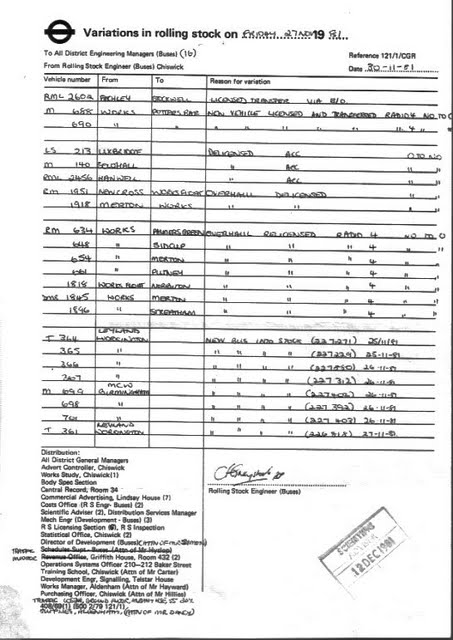 Variations in rolling stock on FRIDAY 27 NOV 1981.
To All District Engineering Managers (Buses) (16)
Reference 121/1/CGR
From Rolling Stock Engineer (Buses) Chiswick
Date 30-11-81
Vehicle number From To Reason for variation
RML 2602 FINCHLEY STOCKWELL LICENSED TRANSFER VIA B/O.
M 688 WORKS POTTERS BAR NEW VEHICLE LICENSED AND TRANSFERRED RADIO 4 NO TO O
690 " " " " 4 "
LS 213 UXBRIDGE DELICENSED ACC O TO NO
M 140 " ACC "
RML 2456 HANWELL " ACC "
RM 1951 NEW CROSS WORKS FLOAT OVERHAUL DELICENSED "
1918 MERTON WORKS " " "
RM 634 WORKS PALMERS GREEN OVERHAUL RELICENSED RADIO 4 NO TO O
648 " SIDCUP " " " 4 "
654 " MERTON " " " 4 "
661 " PUTNEY " " " 4 "
1818 WORKS FLOAT NORBITON " " " 4 "
DMS 1845 WORKS MERTON " " " 4 "
1896 " STREATHAM " " " 4 "
T 364 LEYLAND WORKINGTON NEW BUS INTO STOCK (227271) 25/11/81
365 " " " " " (227229) 25-11-81
366 " " " " " 26-11-81
367 " " " " " (227312) 26-11-81
M 699 MCW BIRMINGHAM " " " " 26-11-81
698 " " " " " (227392) 26-11-81
701 " " " " " (227403) 26-11-81
T 361 LEYLAND WORKINGTON " " " " (226818) 27-11-81
Distribution:
All District General Managers
Advert Controller, Chiswick
Works Study, Chiswick(1)
Body Spec Section
Central Record, Room 34
Commercial Advertising, Lindsay House (7)
Rolling Stock Engineer (Buses)
Costs Office (R S Engr- Buses) (2)
Scientific Adviser (2), Distribution Services Manager
Mech Engr (Development - Buses) (3)
R S Licensing Section (6), R S Inspection
Statistical Office, Chiswick (2)
Director of Development (Buses)
Schedules Supt - Buses (Attn of Mr Hyslop)
Revenue Office, Griffith House, Room 432 (2)
Operations Systems Officer 210-212 Baker Street
Training School, Chiswick (Attn of Mr Carter)
Development Engr, Signalling, Telstar House
Works Manager, Aldenham (Attn of Mr Hayward)
Purchasing Officer, Chiswick (Attn of Mr Hillies)
408/89(1) (500 2/79 121/1)
12 DEC 1981